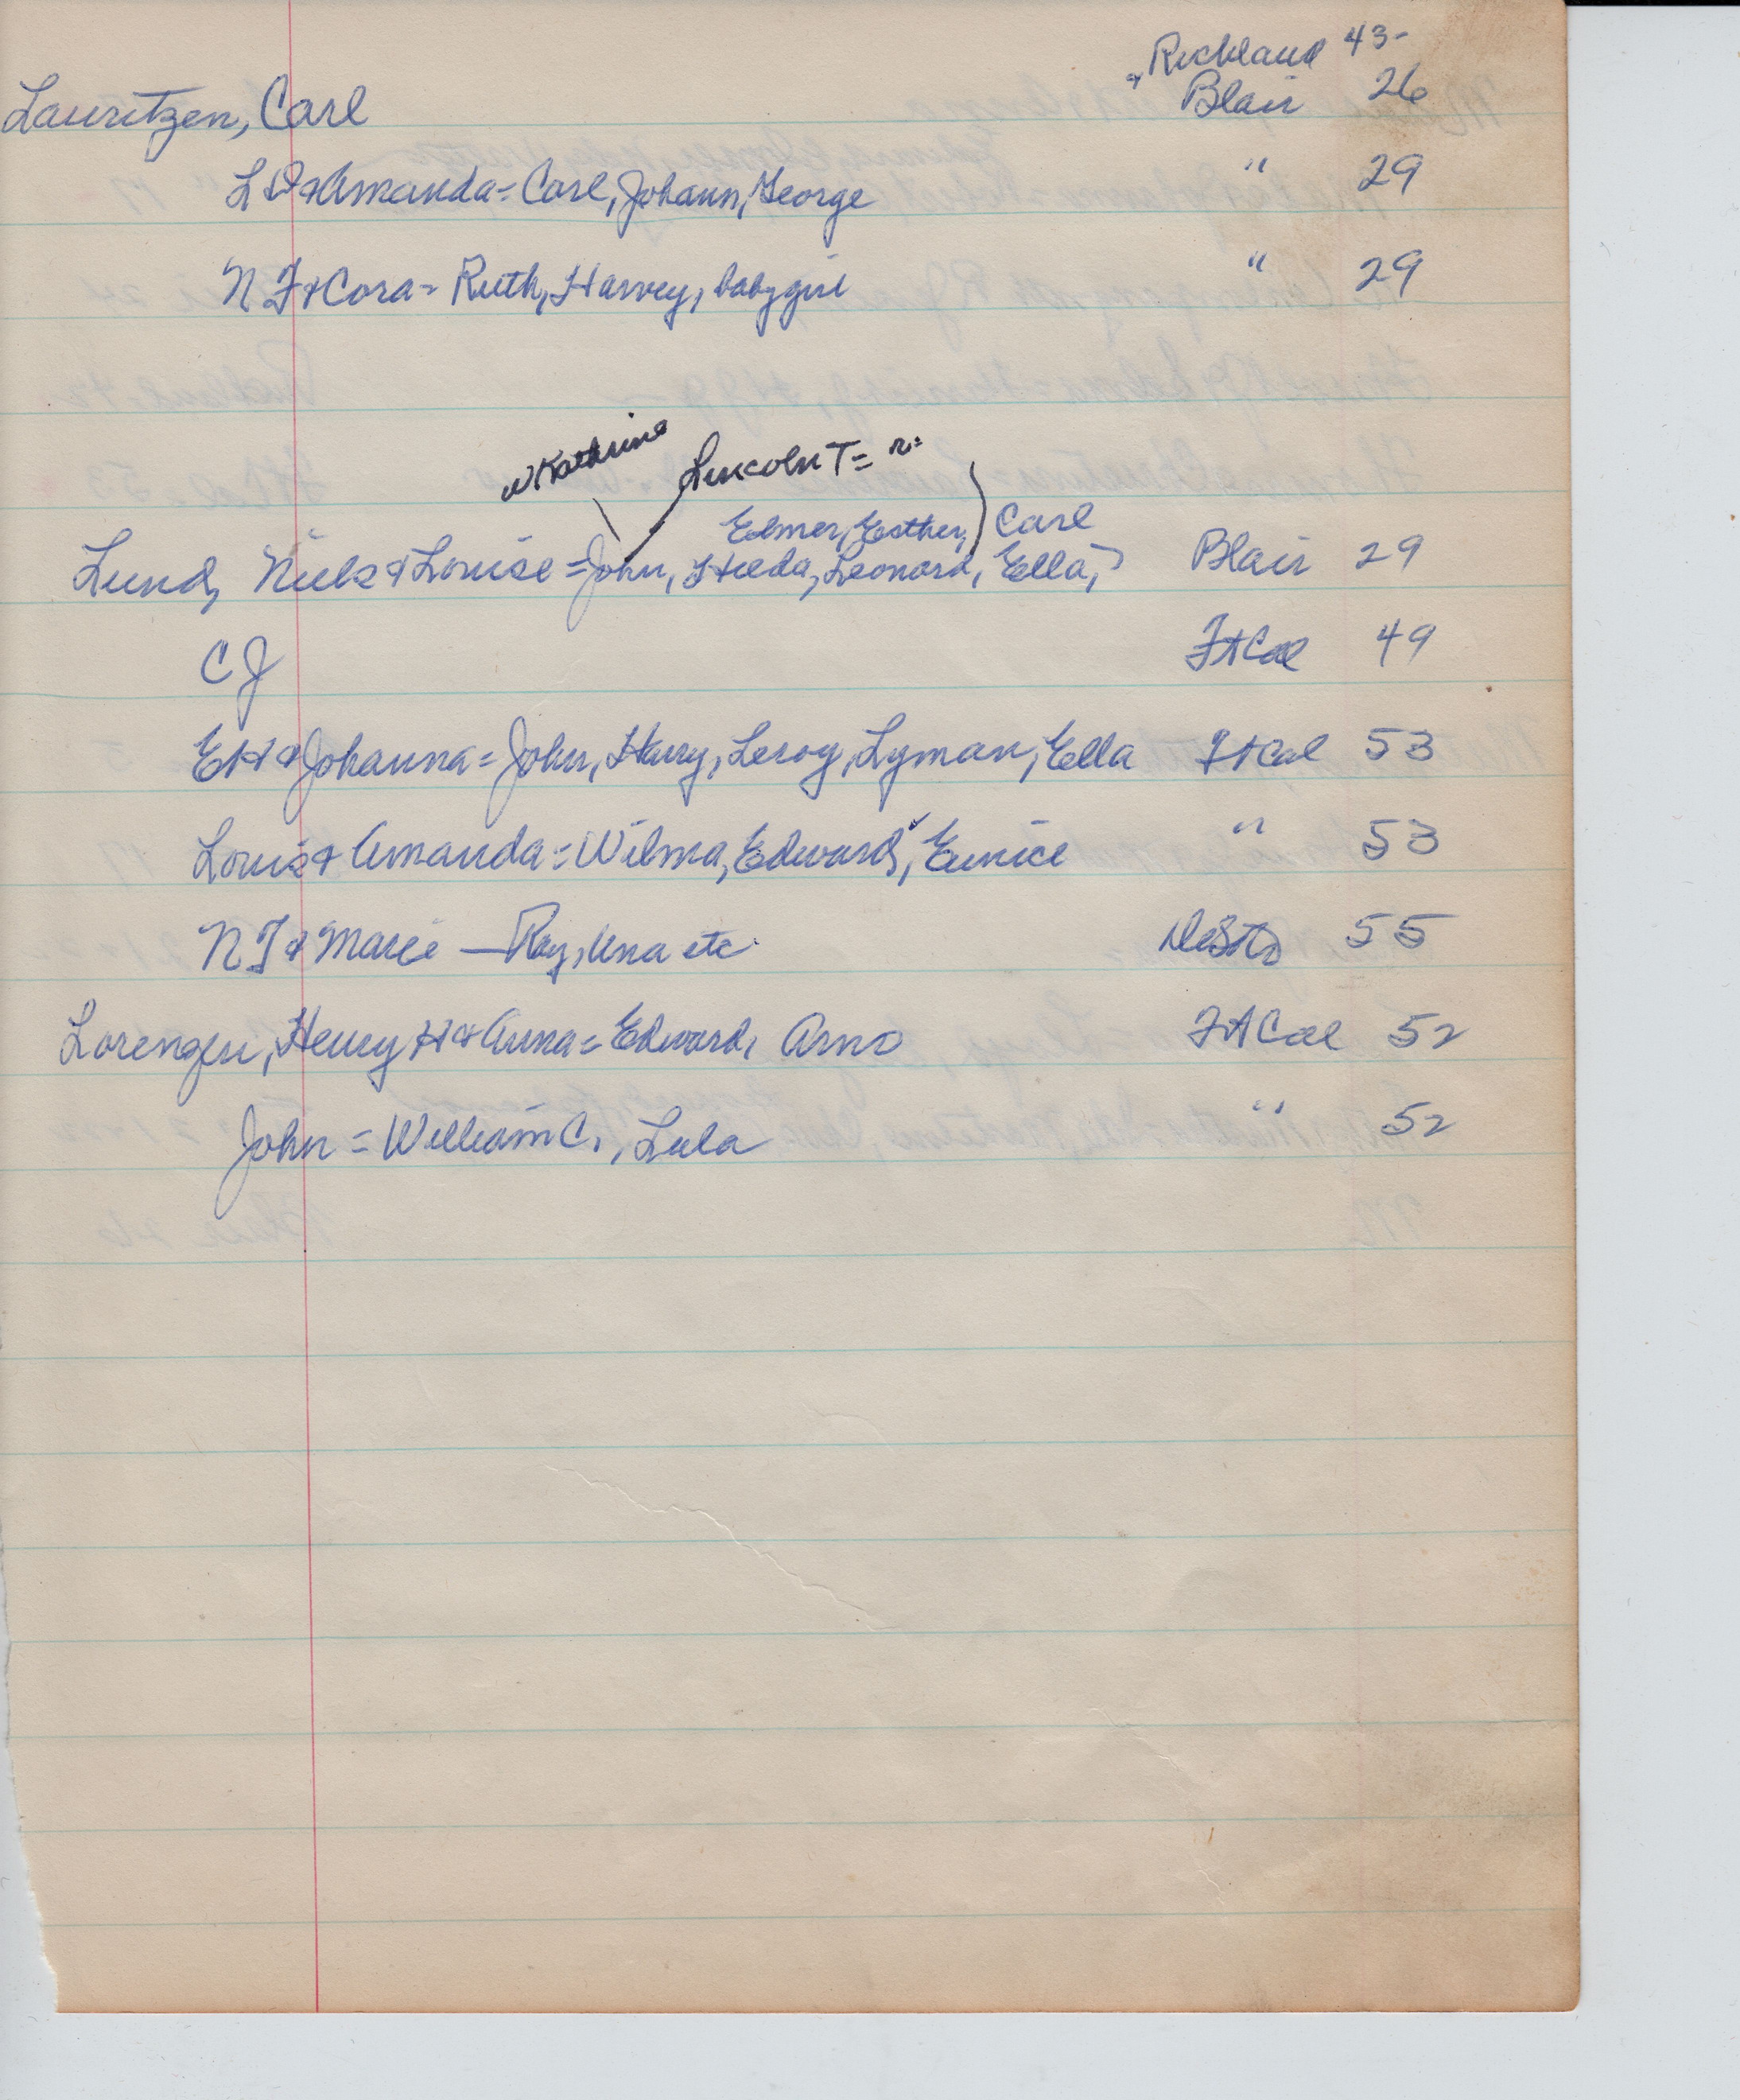 Richland 43-
Lauritzen, Carl Blair 26
L & Amanda = Carl, Johann, George " 29
N F & Cora = Ruth, Harvey, baby girl " 29
w Kathrine Lincoln T =
Elmer, Esther, ) Carl
Lund, Niels & Louise = John, Hilda, Leonard, Ella, Blair 29
C J Ft Cal 49
E H & Johanna = John, Harry, Leroy, Lyman, Ella Ft Cal 53
Louis & Amanda = Wilma, Edward, Eunice " 53
N J & Marie — Ray, Una etc DeSoto 55
Lorenzen, Henry H & Anna = Edward, Arno Ft Cal 52
John = William C., Lula " 52